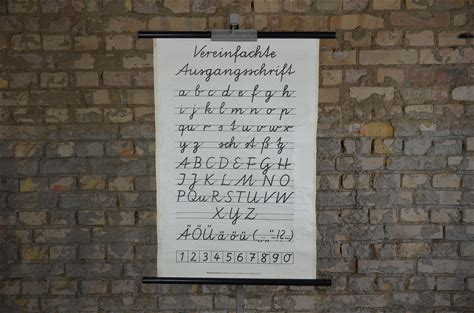 Vereinfachte
Ausgangsschrift
a b c d e f g h
i j k l m n o p
qu r s t u v w x
y z sch st ß tz
A B C D E F G H
I J K L M N O
P Qu R S T U V W
X Y Z
Ä Ö Ü ä ö ü (.,„"-!?..)
1 2 3 4 5 6 7 8 9 0